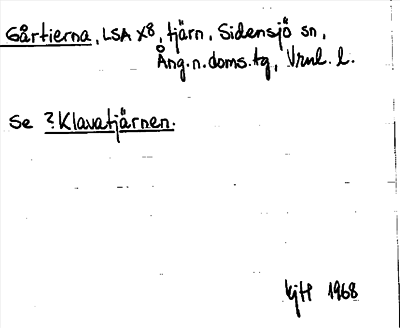 Gårtierna, LSA X8, tjärn, Sidensjö sn,
Ång.n.doms.tg, Vrnl. l.
Se ? Klavatjärnen.
KjH 1968